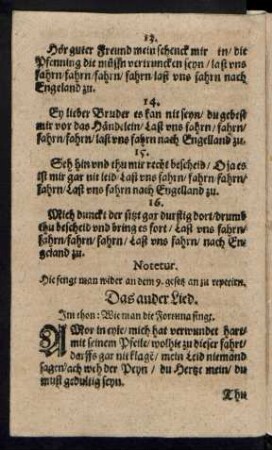 13.
Hör guter Freund mein schenck mir in/die
Pfenning die müssn vertruncken seyn/ last vns
fahrn/fahrn/fahrn/ fahrn last vns fahrn nach
Engeland zu.
14.
Ey lieber Bruder es kan nit seyn/ du gebest
mir vor das Händelein/ Last vns fahrn/fahrn/
fahrn/fahrn/ last vns fahrn nach Engelland zu.
15.
Seh hin vnd thu mir recht bescheid/ O ja es
ist mir gar nit leid/ Last vns fahrn/ fahrn/ fahrn/
fahrn/ Last vns fahrn nach Engelland zu.
16.
Mich dunckt der sitzt gar durstig dort/drumb
thu bescheid vnd bring es fort/ Last vns fahrn/
fahrn/fahrn/ fahrn/ Last vns fahrn/ nach En-
geland zu.
Notetur.
Hie fengt man wider an dem 9. gesetz an zu repetirn.
Das ander Lied.
Im thon: Wie man die Fortuna singt.
AMor in eyle/ mich hat verwundet hart/
mit seinem Pfeile/ wolhie zu dieser fahrt/
darffs gar nit klagē/ mein Leid niemand
sagen/ach weh der Peyn/ du Hertze mein/ du
must gedultig seyn.
Thu